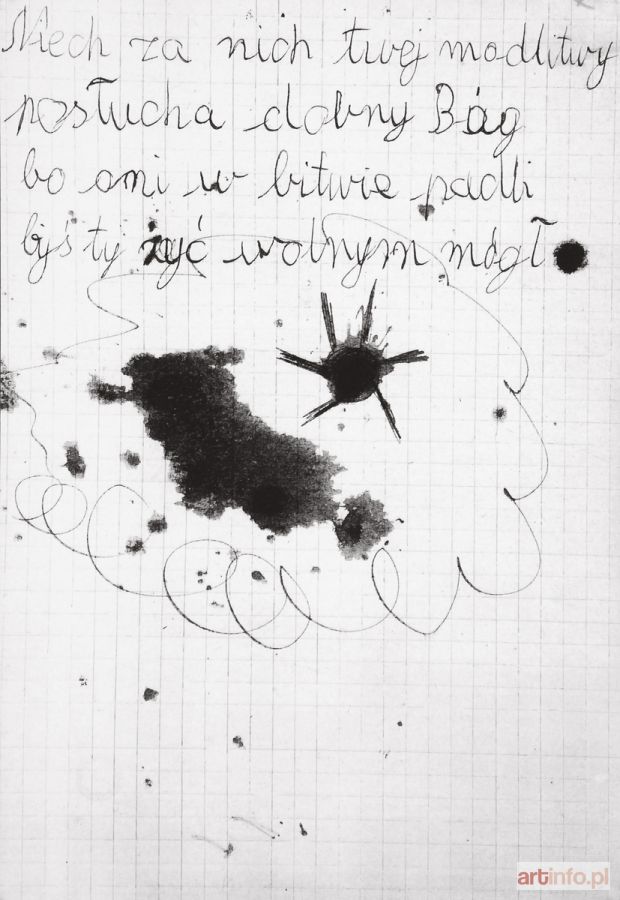 Niech za nich twej modlitwy
posłucha dobry Bóg
bo oni w bitwie padli
byś ty żyć wolnym mógł
artinfo.pl